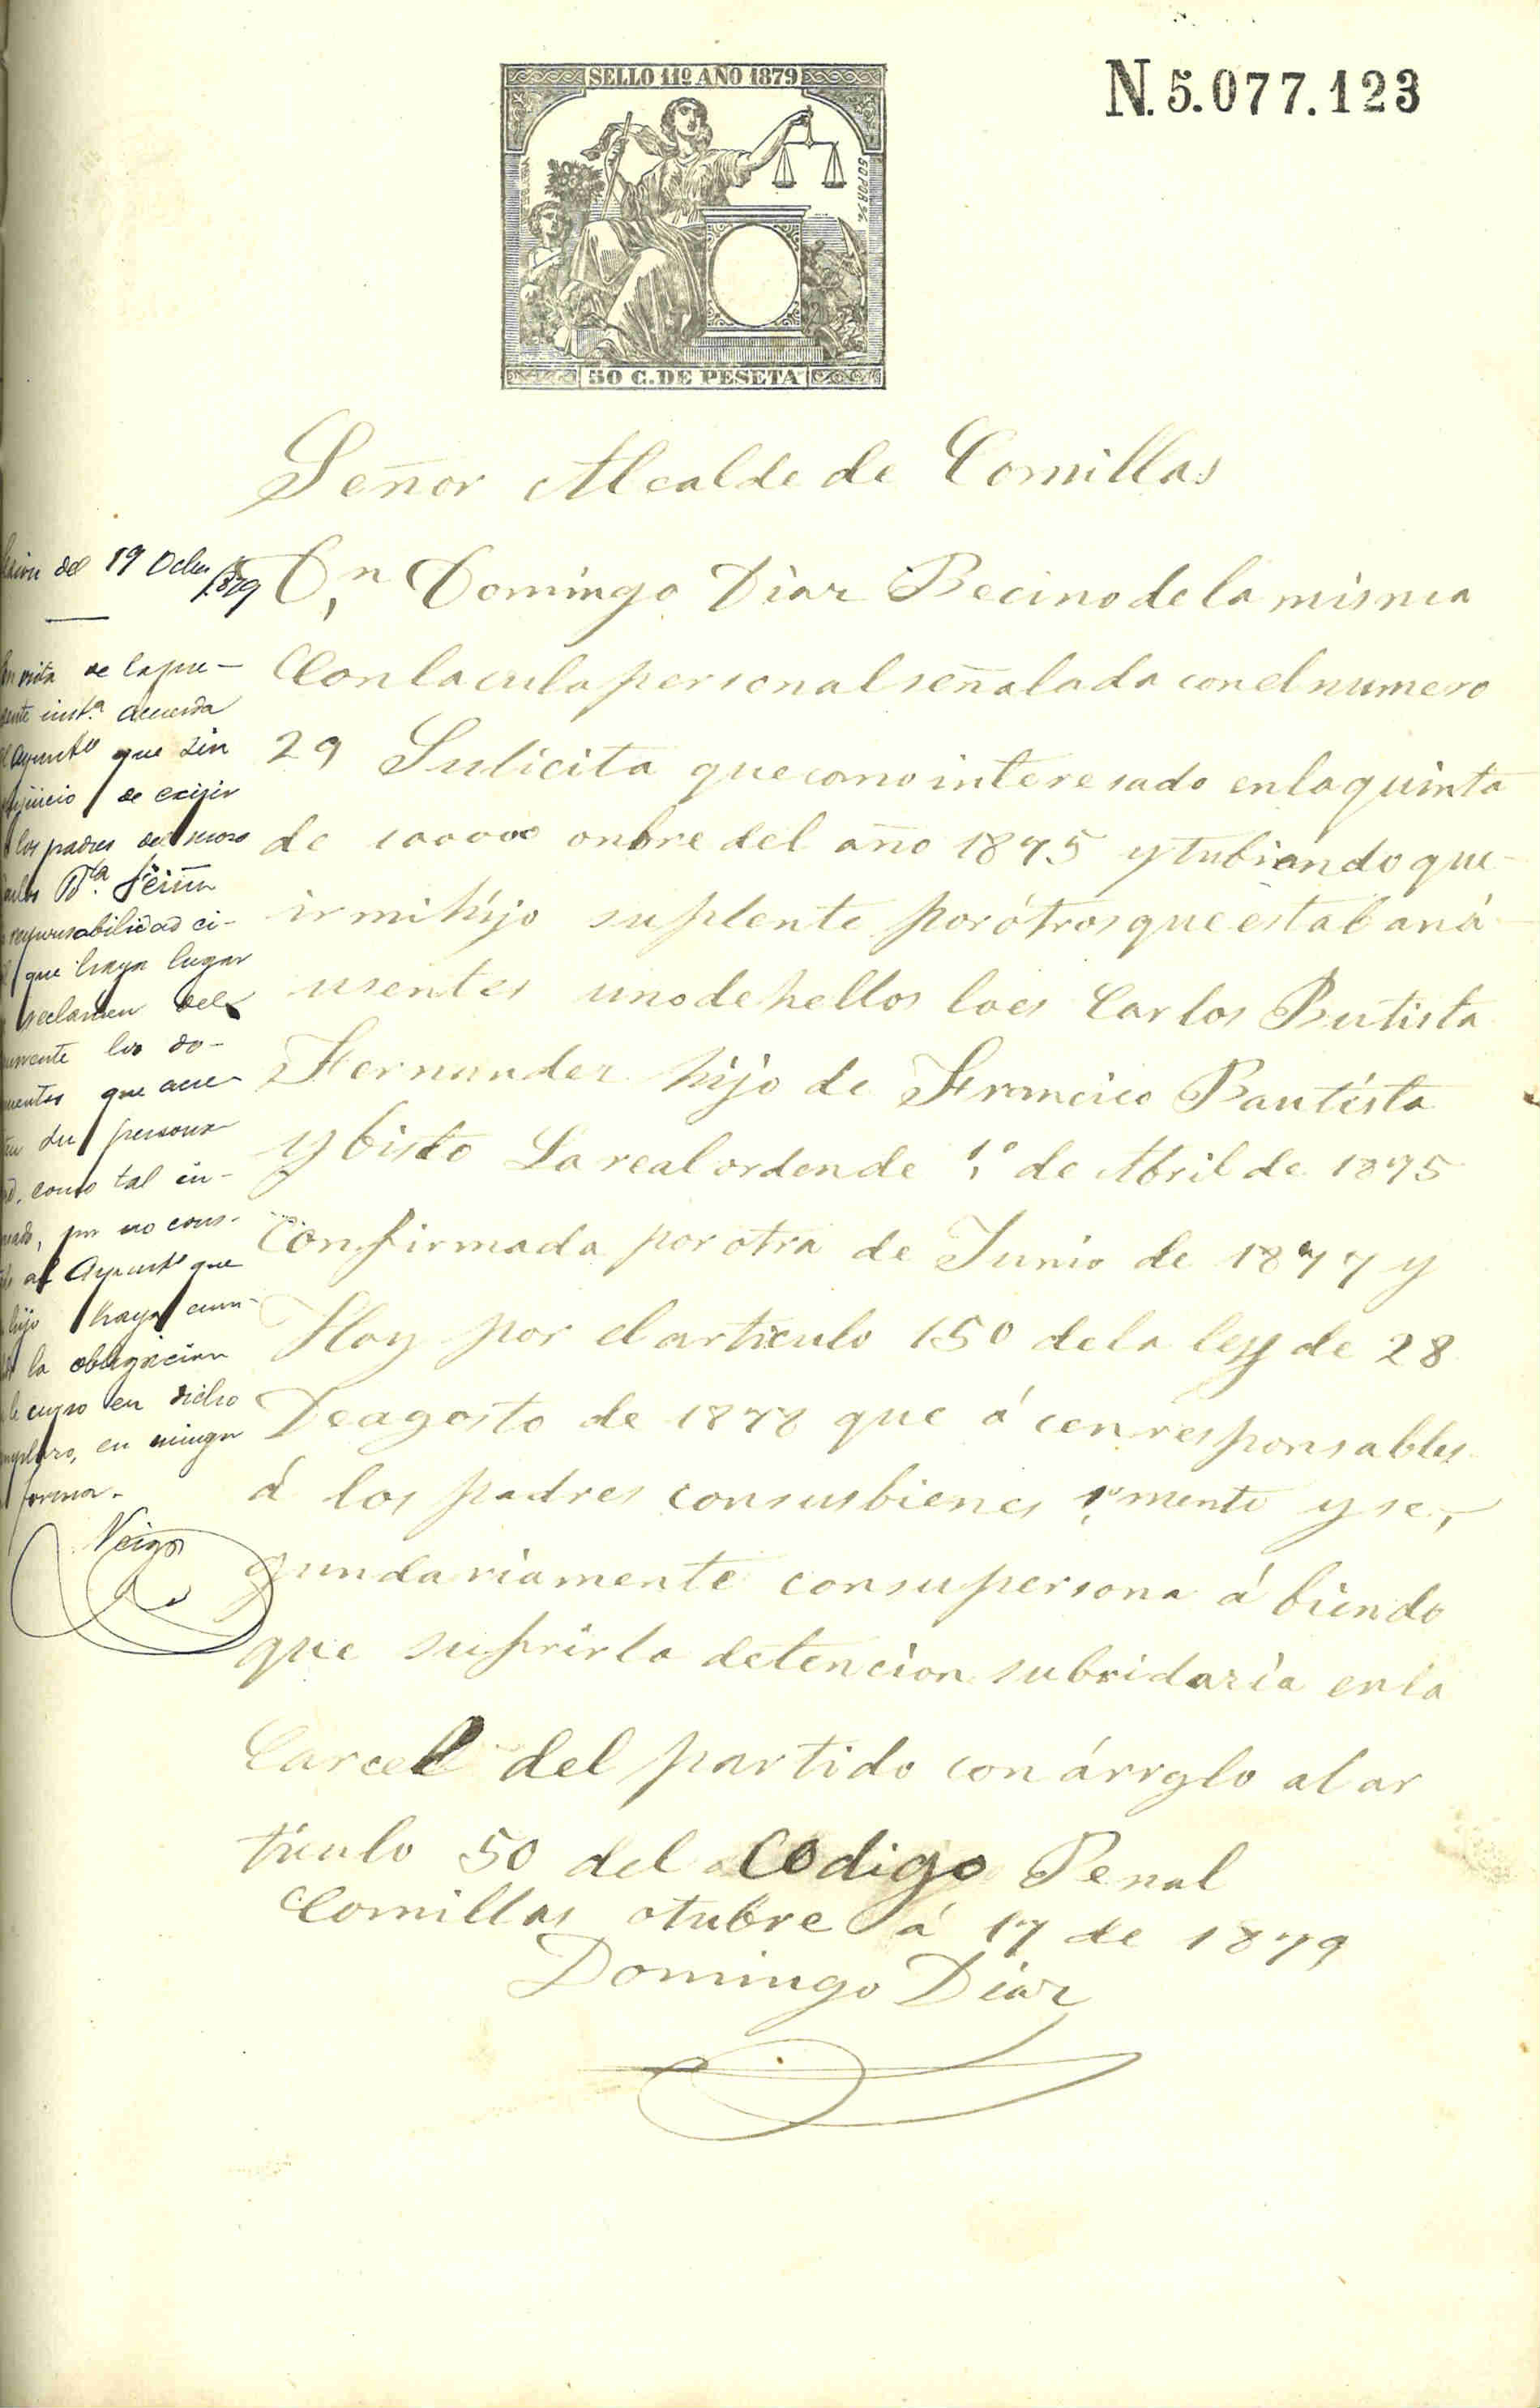 SELLO 11º AÑO 1879
N.5.077.123
50 C. DE PESETA
Señor Alcalde de Comillas
Dn Domingo Diaz Becino de la misma
Con la cula personal señalada con el numero
29 Sulicita que como interesado en la quinta
de 100000 onbre del año 1875 y tubiando que
ir mi hijo suplente por ótros que estaban á
usentes uno de hellos loes Carlos Butista
Fernander hijo de Francico Bautista
y bisto La real orden de 1º de Abril de 1875
Confirmada por otra de Junio de 1877 y
Hoy por el articulo 150 de la ley de 28
De agosto de 1878 que á cen responsables
á los padres con sus bienes 1º mente y se,
gundariamente con su persona á biendo
que sufrir la detencion subsidaria en la
Carcel del partido con árrglo al ar
ticulo 50 del Codigo Penal
Comillas otubre á 17 de 1879
Domingo Diaz
del 19 Octu 1879
vista de la pre-
insta acuerda
Ayunto que sin
de exijir
los padres del mozo
Bta
responsabilidad ci-
que haya lugar
reclamen del
los do-
que acre-
su persona
como tal in-
por no cons-
al Ayunto que
hijo haya cum-
la obligacion
le cupo en dicho
en ningu
forma.